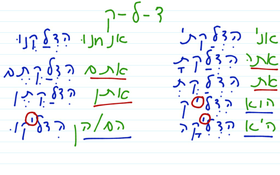 ד-ל-ק
אני הדלקתי אנחנו הדלקנו
אתה הדלקת אתם הדלקתם
את הדלקת אתן הדלקתן
הוא הדליק הם/הן הדליקו
היא הדליקה